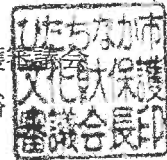 ひたちなか市
文化財保護
審議会長印